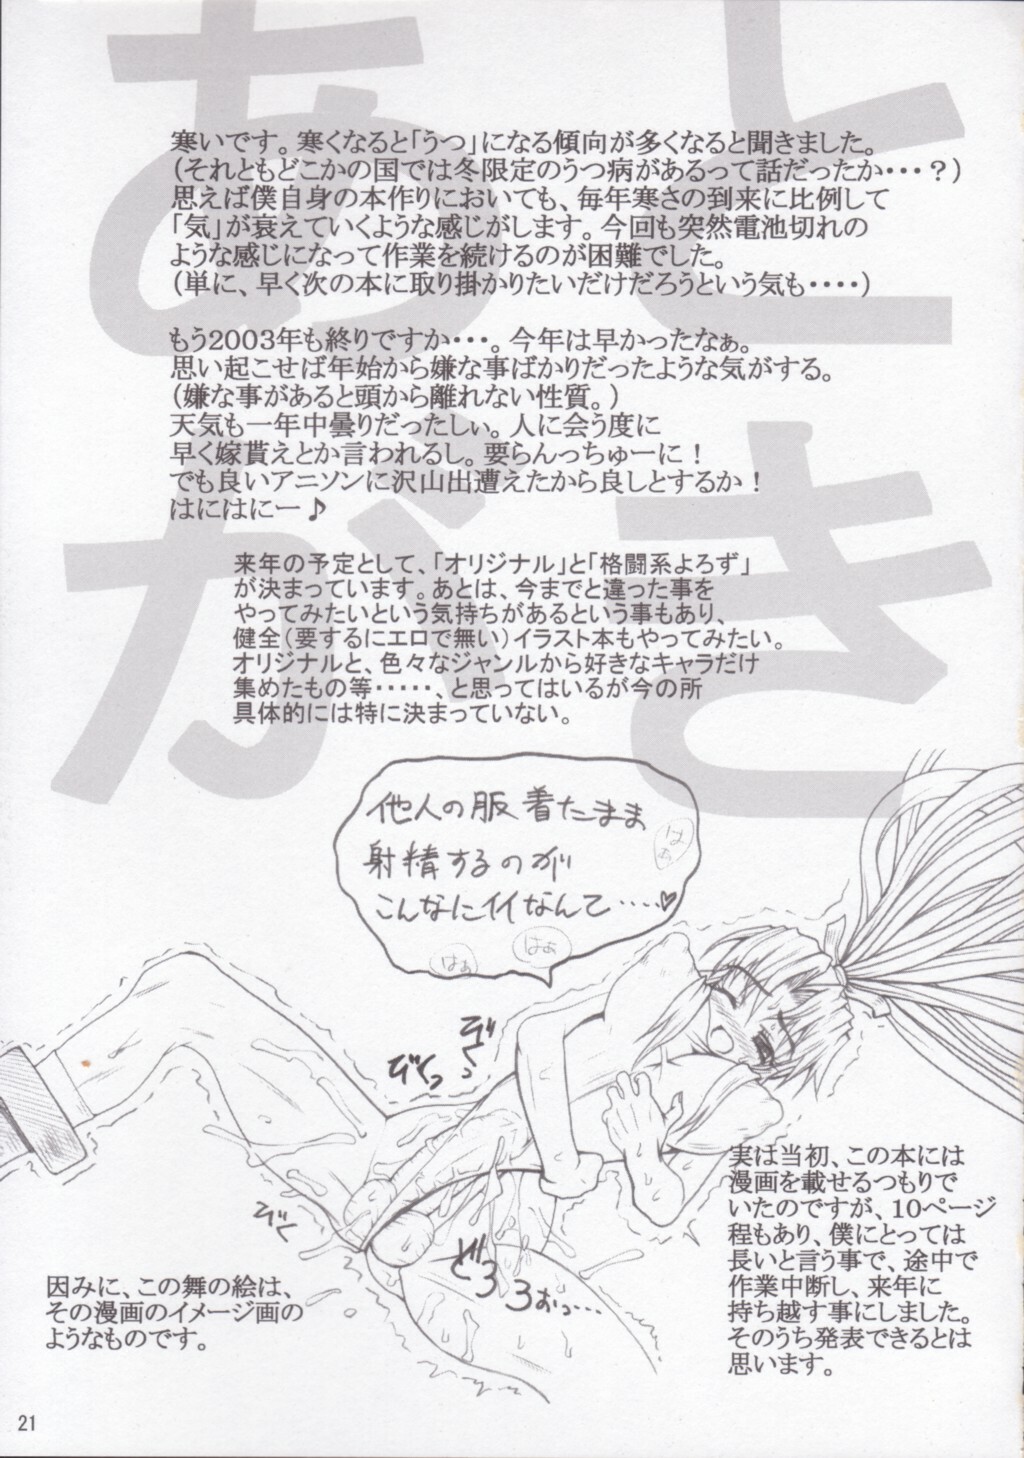 あとがき
寒いです。寒くなると「うつ」になる傾向が多くなると聞きました。
(それともどこかの国では冬限定のうつ病があるって話だったか・・・?)
思えば僕自身の本作りにおいても、毎年寒さの到来に比例して
「気」が衰えていくような感じがします。今回も突然電池切れの
ような感じになって作業を続けるのが困難でした。
(単に、早く次の本に取り掛かりたいだけだろうという気も・・・・)
もう2003年も終りですか・・・。今年は早かったなぁ。
思い起こせば年始から嫌な事ばかりだったような気がする。
(嫌な事があると頭から離れない性質。)
天気も一年中曇りだったしぃ。人に会う度に
早く嫁貰えとか言われるし。要らんっちゅーに!
でも良いアニソンに沢山出遭えたから良しとするか!
はにはにー♪
来年の予定として、「オリジナル」と「格闘系よろず」
が決まっています。あとは、今までと違った事を
やってみたいという気持ちがあるという事もあり、
健全(要するにエロで無い)イラスト本もやってみたい。
オリジナルと、色々なジャンルから好きなキャラだけ
集めたもの等・・・・・、と思ってはいるが今の所
具体的には特に決まっていない。
他人の服着たまま
射精するのが
こんなにイイなんて……♡
はぁ
はぁ
はぁ
びくっ
びくっ
びく
どろろ
ろぉっ…
実は当初、この本には
漫画を載せるつもりで
いたのですが、10ページ
程もあり、僕にとっては
長いと言う事で、途中で
作業中断し、来年に
持ち越す事にしました。
そのうち発表できるとは
思います。
因みに、この舞の絵は、
その漫画のイメージ画の
ようなものです。
21